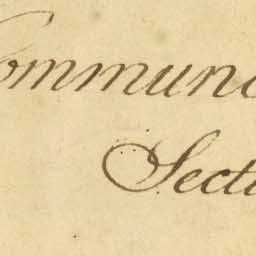 ommun
Secti